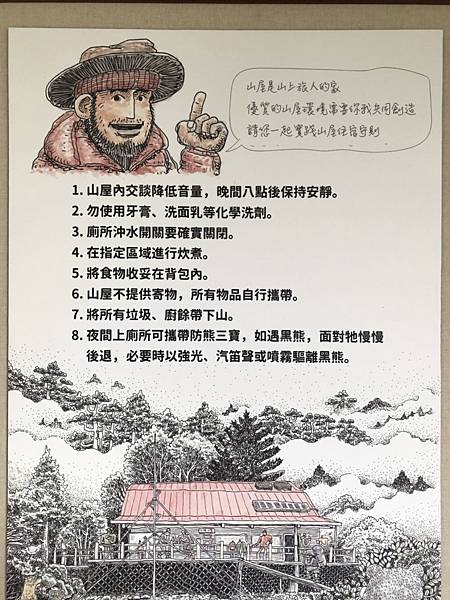 山屋是山上旅人的家
優質的山屋環境需要你我共同創造
請您一起實踐山屋住宿守則
1. 山屋內交談降低音量，晚間八點後保持安靜。
2. 勿使用牙膏、洗面乳等化學洗劑。
3. 廁所沖水開關要確實關閉。
4. 在指定區域進行炊煮。
5. 將食物收妥在背包內。
6. 山屋不提供寄物，所有物品自行攜帶。
7. 將所有垃圾、廚餘帶下山。
8. 夜間上廁所可攜帶防熊三寶，如遇黑熊，面對牠慢慢
後退，必要時以強光、汽笛聲或噴霧驅離黑熊。